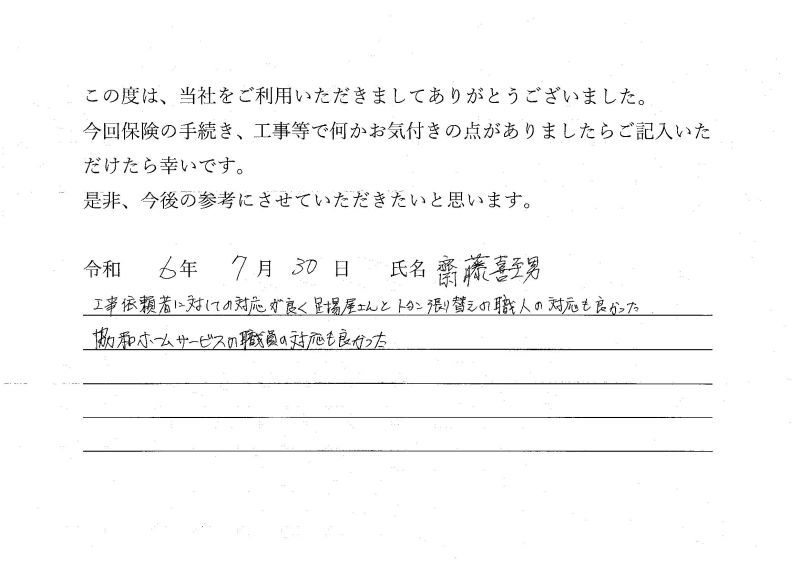 この度は、当社をご利用いただきましてありがとうございました。
今回保険の手続き、工事等で何かお気付きの点がありましたらご記入いた
だけたら幸いです。
是非、今後の参考にさせていただきたいと思います。
令和 6年 7月 30日 氏名 齋藤喜至男
工事依頼者に対しての対応が良く足場屋さんとトタン張り替えの職人の対応も良かった
協和ホームサービスの職員の対応も良かった